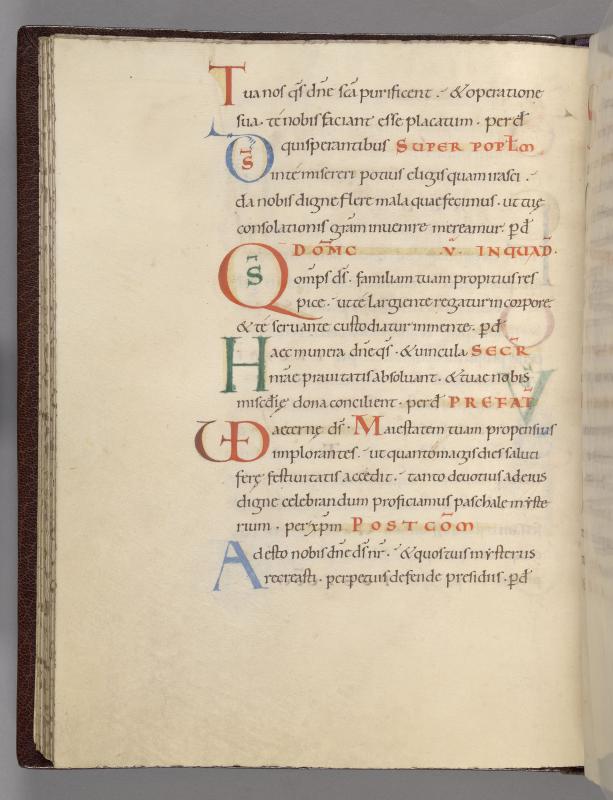 Tua nos q̄s dn̄e sc̄a purificent · & operatione
sua · té nobis faciant esse placatum · per đ
S quisperantibus SUPER POPŁM
in té misereri potius eligis quam irasci ·
da nobis digne flere mala quae fecimus · ut tuę
consolationis grām invenire mereamur · p đ
DOM̄C V̄ · IN QUAD̄ ·
Qs̄ omps ds̄ · familiam tuam propitius res
pice · ut té largiente regatur in corpore
& té servante custodiatur in mente · p đ
Haec munera dn̄e q̄s · & vincula SECR̄
nr̄ae pravitatis absolvant · & tuae nobis
misc̄dię dona concilient · per đ PREFAT
VD aeterne ds̄ · Maiestatem tuam propensius
implorantes · ut quanto magis dies saluti
ferę festivitatis accedit · tanto devotius ad eius
digne celebrandum proficiamus paschale myste
rium · per xp̄m POST COM̄
Adesto nobis dn̄e ds̄ nr̄ · & quos tuis mysteriis
recreasti · perpetuis defende presidiis · p đ